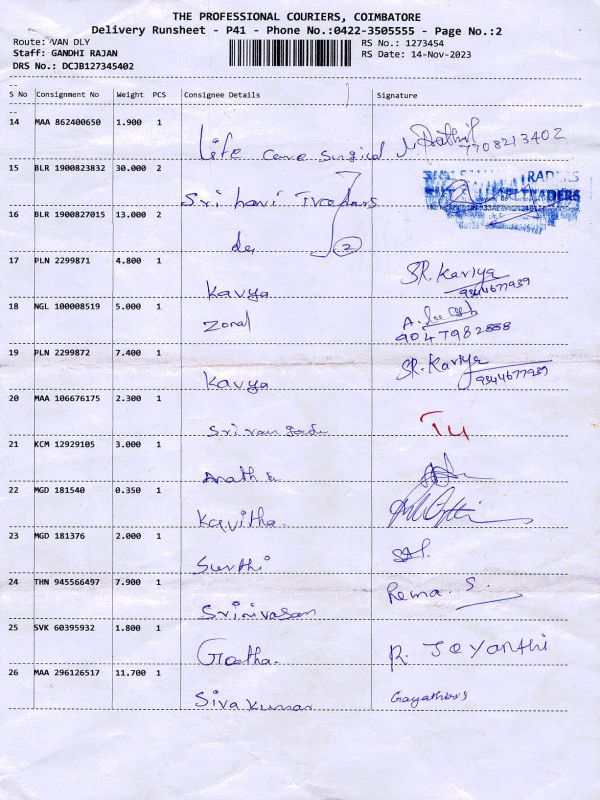 THE PROFESSIONAL COURIERS, COIMBATORE
Delivery Runsheet - P41 - Phone No.:0422-3505555 - Page No.:2
Route: VAN DLY RS No.: 1273454
Staff: GANDHI RAJAN RS Date: 14-Nov-2023
DRS No.: DCJB127345402
S No Consignment No Weight PCS Consignee Details Signature
14 MAA 862400650 1.900 1
Life care Surgical 7708213402
15 BLR 1900823832 30.000 2
Sri hari Traders TRADERS
16 BLR 1900827015 13.000 2
do 2
17 PLN 2299871 4.800 1
Kavya SR. Kaviya 9344677939
18 NGL 100008519 5.000 1
Zonal A. 9047982858
19 PLN 2299872 7.400 1
Kavya SR. Kaviya 9344677939
20 MAA 106676175 2.300 1
21 KCM 12929105 3.000 1
22 MGD 181540 0.350 1
Kavitha.
23 MGD 181376 2.000 1
Surthi
24 THN 945566497 7.900 1
Srinivasan Rema. S.
25 SVK 60395932 1.800 1
Geetha. R. Jeyanthi
26 MAA 296126517 11.700 1
Siva kumar